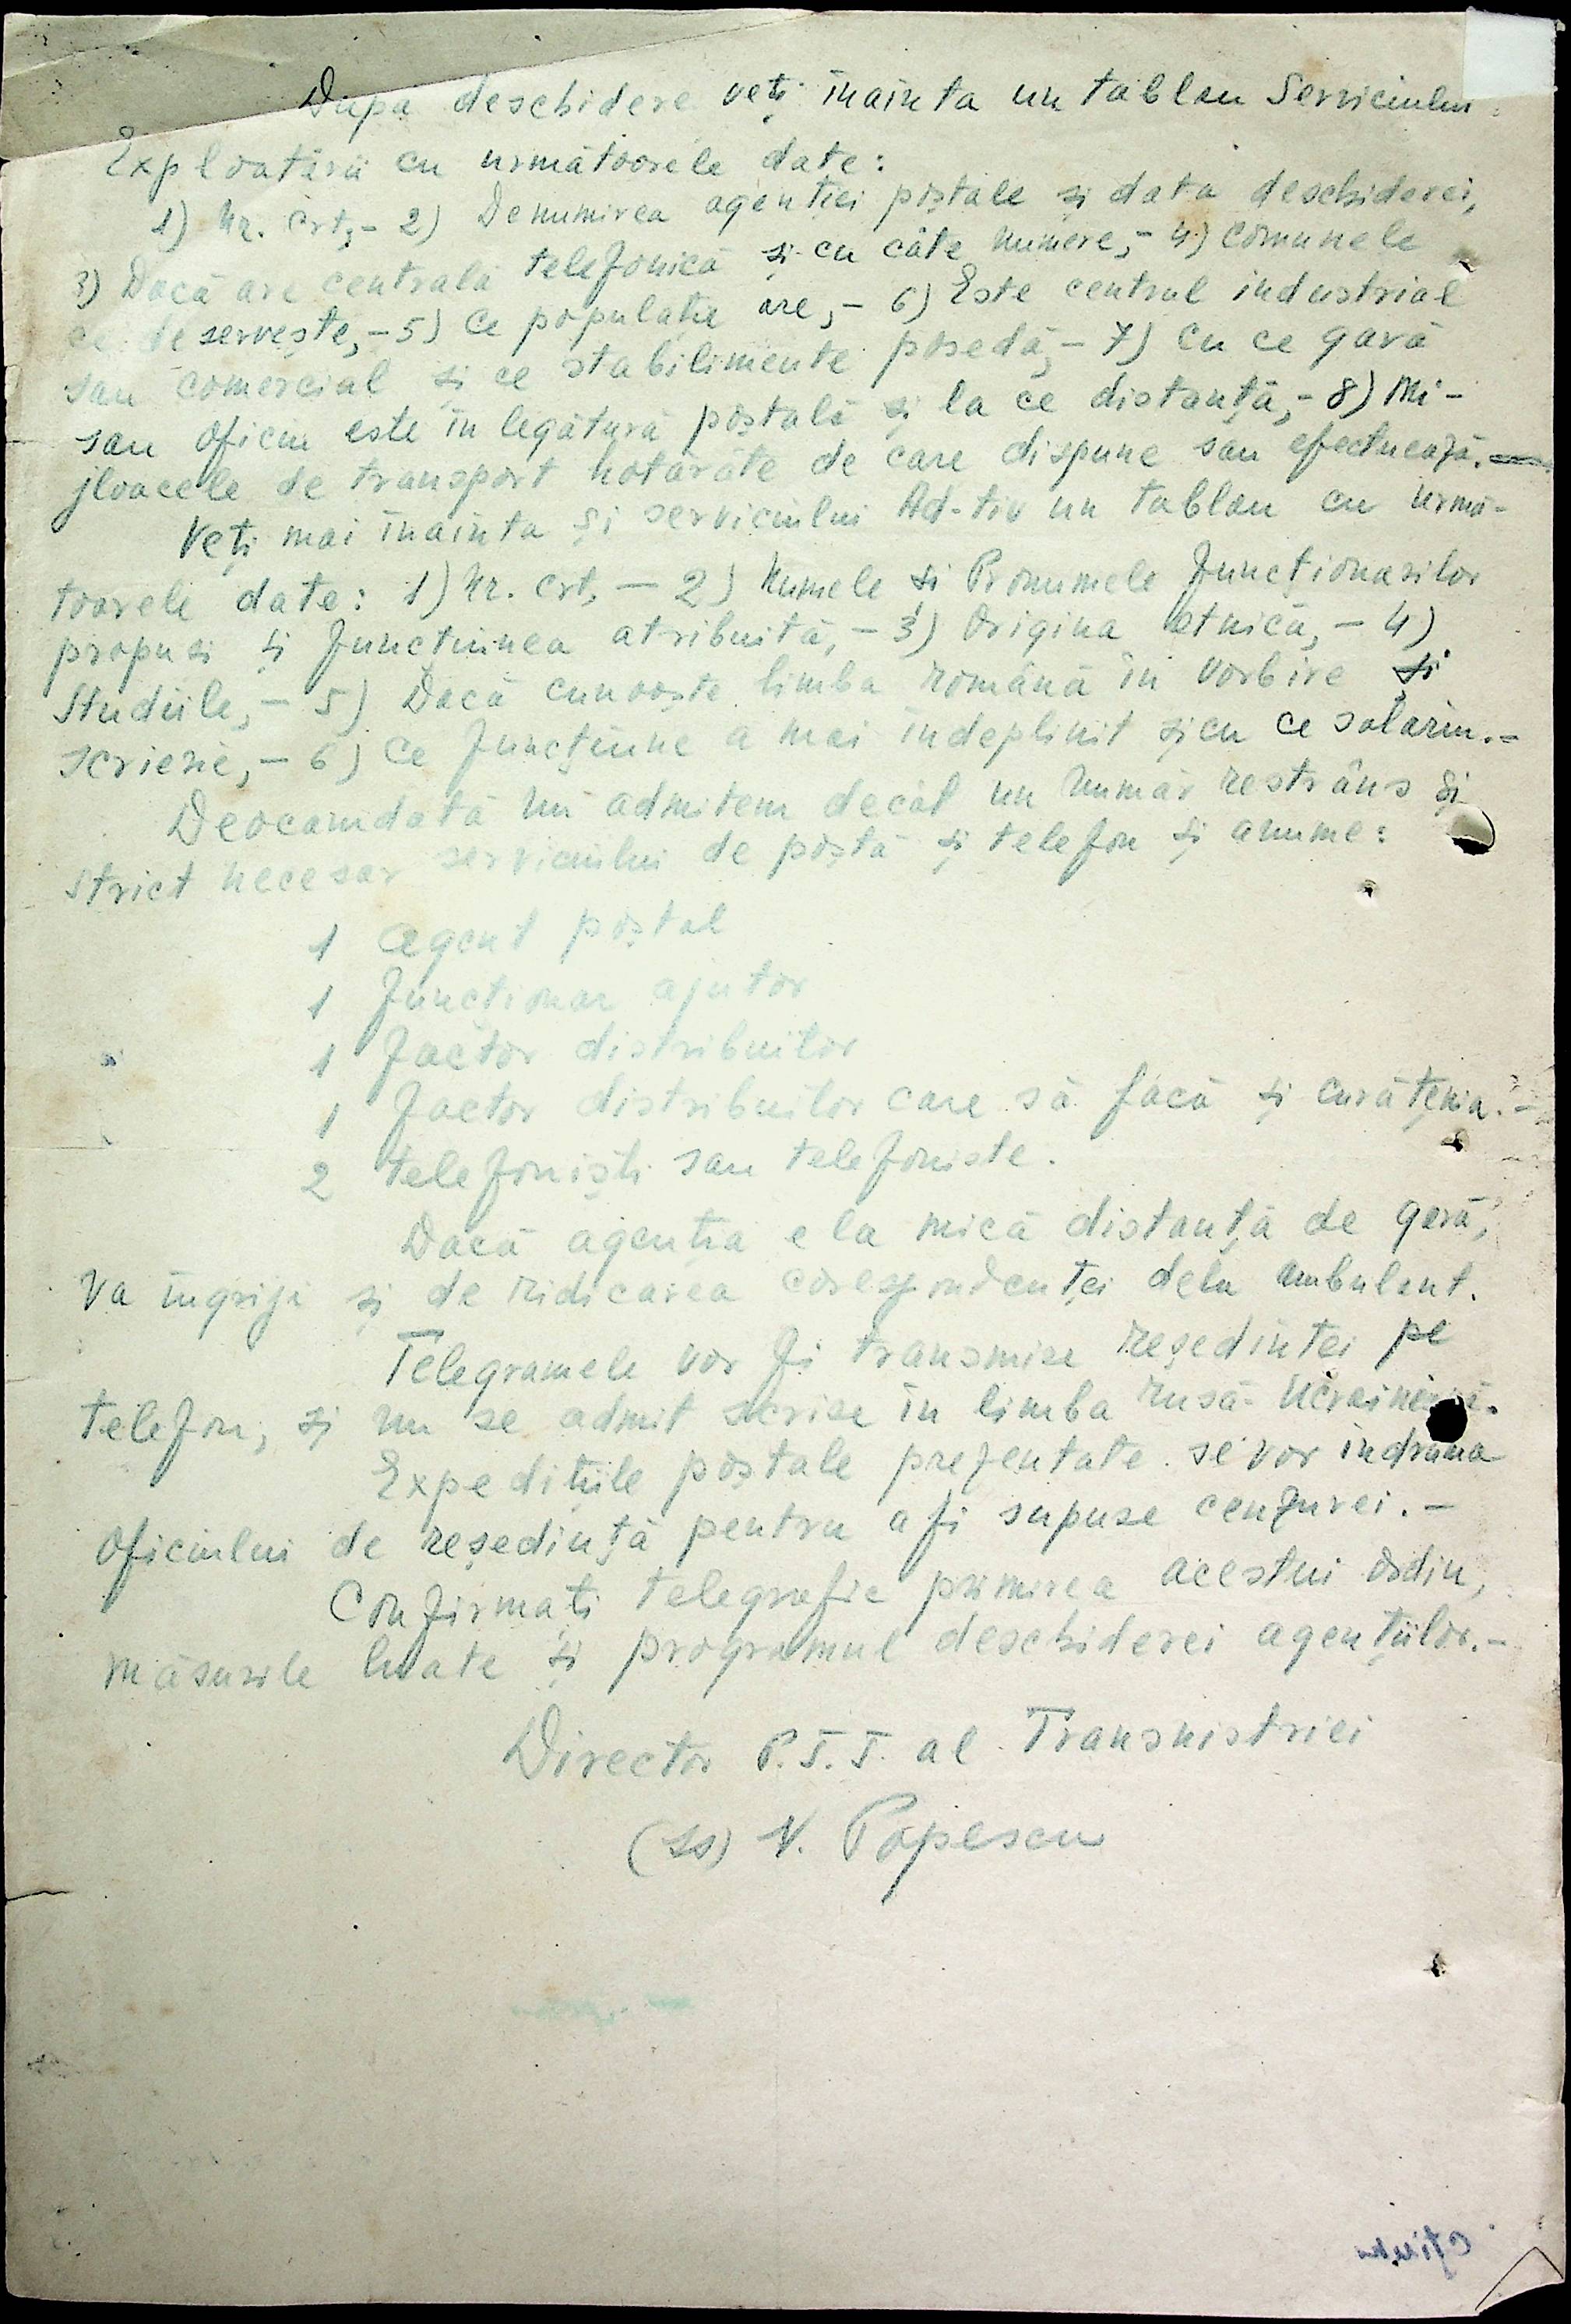 După deschidere veți înainta un tablou Serviciului
Exploatării cu următoarele date:
1) Nr. crt,- 2) Denumirea agenției poștale și data deschiderei,
3) Dacă are centrală telefonică și cu câte numere,- 4) Comunele
ce deservește,- 5) Ce populație are,- 6) Este centrul industrial
sau comercial și ce stabilimente posedă,- 7) Cu ce gară
sau oficiu este în legătură poștală și la ce distanță,- 8) Mi-
jloacele de transport hotărâte de care dispune sau efectuează.-
Veți mai înainta și serviciului Ad-tiv un tablou cu urmă-
toarele date: 1) Nr. crt, - 2) Numele și Pronumele funcționarilor
propuși și funcțiunea atribuită, - 3) Origina etnică, - 4)
Studiile, - 5) Dacă cunoaște limba română în vorbire și
scriere, - 6) Ce funcțiune a mai îndeplinit și cu ce salariu.-
Deocamdată nu admitem decât un număr restrâns și
strict necesar serviciului de poștă și telefon și anume:
1 agent poștal
1 funcționar ajutor
1 factor distribuitor
1 factor distribuitor care să facă și curățenia.-
2 telefoniști sau telefoniste.
Dacă agenția e la mică distanță de gară,
va îngriji și de ridicarea corespondenței dela ambulant.
Telegramele vor fi transmise reședinței pe
telefon, și nu se admit scrise în limba rusă-
Expedițiile poștale prezentate se vor îndruma
oficiului de reședință pentru a fi supuse cenzurei.-
Confirmați telegrafic primirea acestui ordin,
măsurile luate și programul deschiderei agențiilor.-
Director P.T.T. al Transnistriei
(ss) N. Popescu